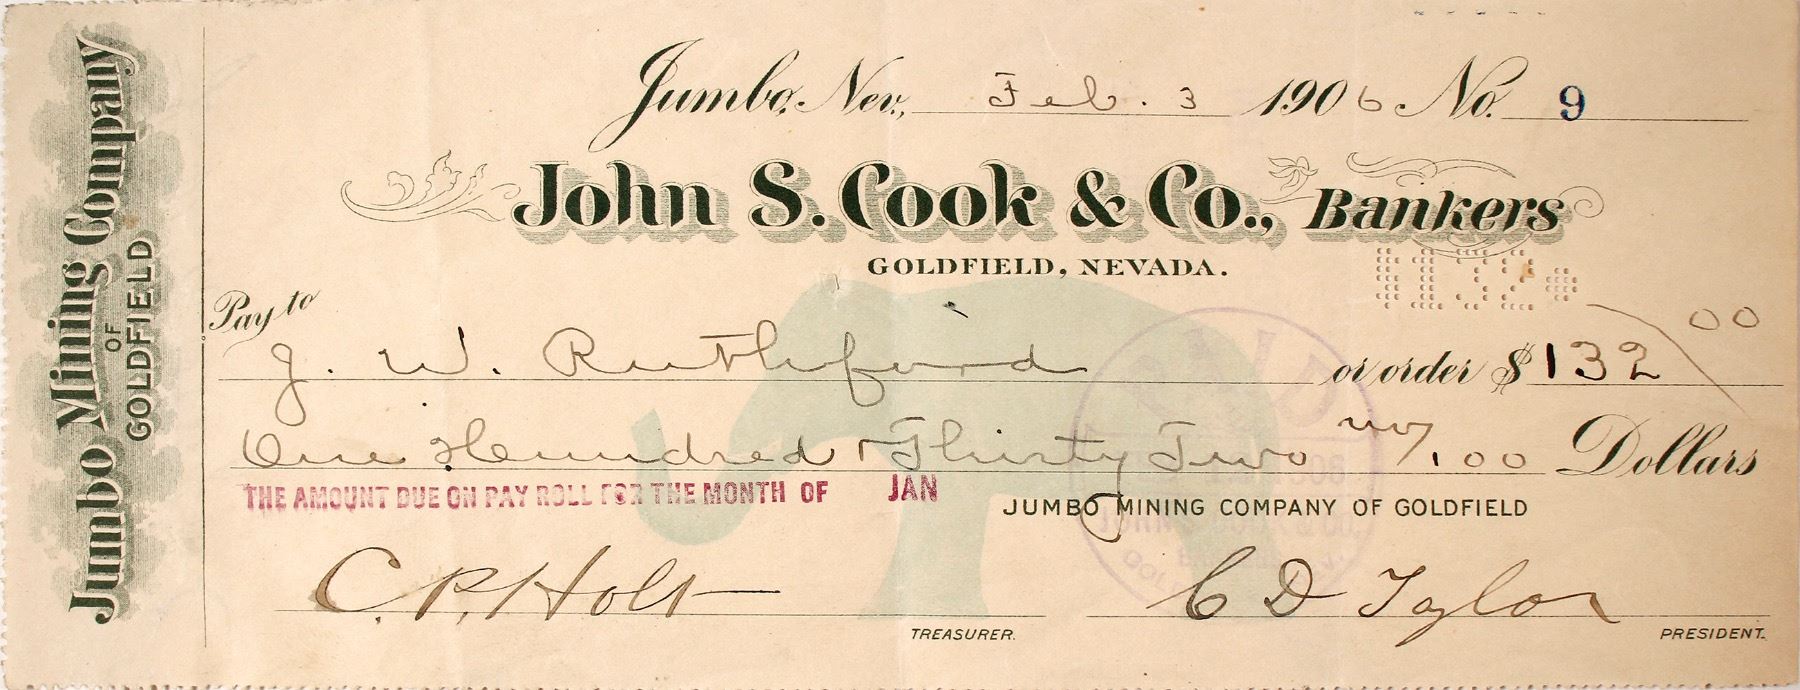 Jumbo Mining Company
OF
GOLDFIELD
Jumbo, Nev., Feb. 3 1906 No. 9
John S. Cook & Co., Bankers
GOLDFIELD, NEVADA.
$132
Pay to
J. W. Rutherford or order $ 132 00
One Hundred & Thirty Two no/.00 Dollars
THE AMOUNT DUE ON PAY ROLL FOR THE MONTH OF JAN
JUMBO MINING COMPANY OF GOLDFIELD
PAID
JOHN S. COOK & CO.
C. P. Holt C D Taylor
TREASURER. PRESIDENT.